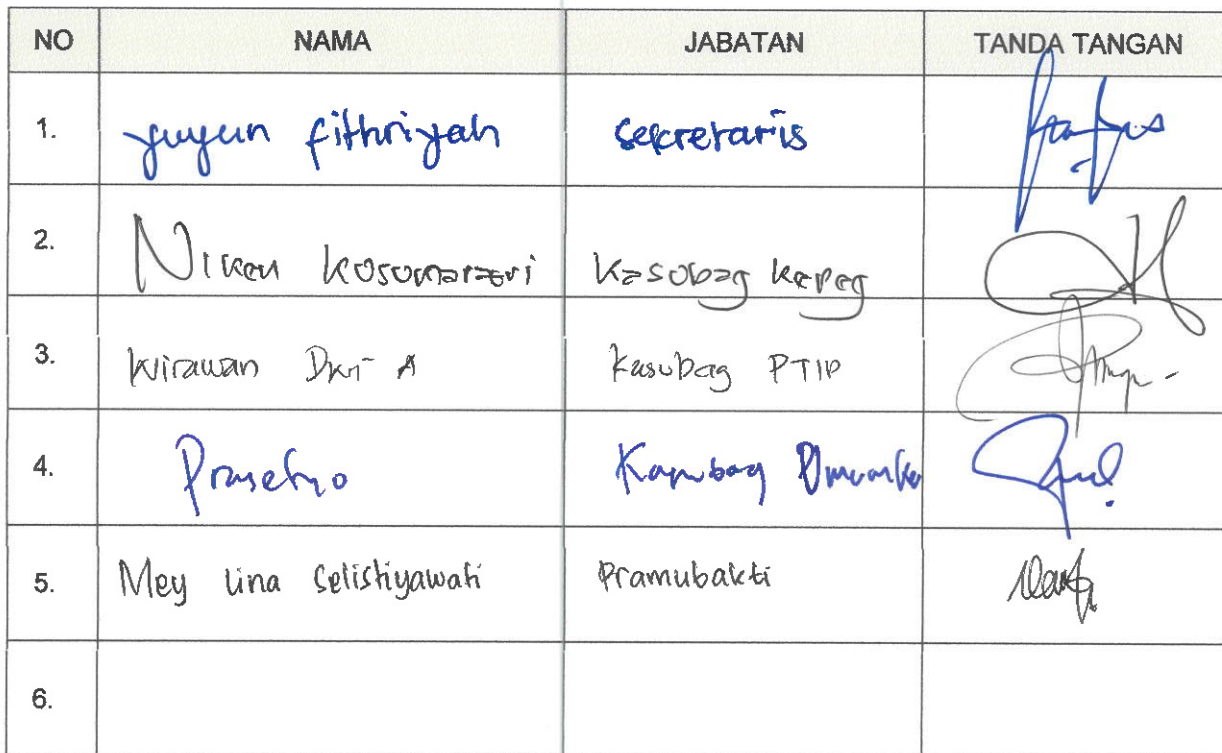 NO NAMA JABATAN TANDA TANGAN
1. yuyun fithriyah sekretaris
2. Niken Kusumarari Kasubag kepeg
3. Wirawan Dwi A Kasubag PTIP
4. Prasetyo Kasubag Umum
5. Mey Lina Selistiyawati Pramubakti
6.